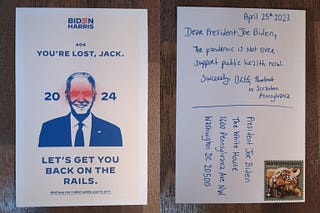 BIDEN
HARRIS
404
YOU'RE LOST, JACK.
20 24
LET'S GET YOU
BACK ON THE
RAILS.
April 25th 2023
Dear President Joe Biden,
The pandemic is not over
support public health now.
Sincerely
in Scranton
Pennsylvania
President Joe Biden
The White House
1600 Pennsylvania Ave NW
Washington DC 20500